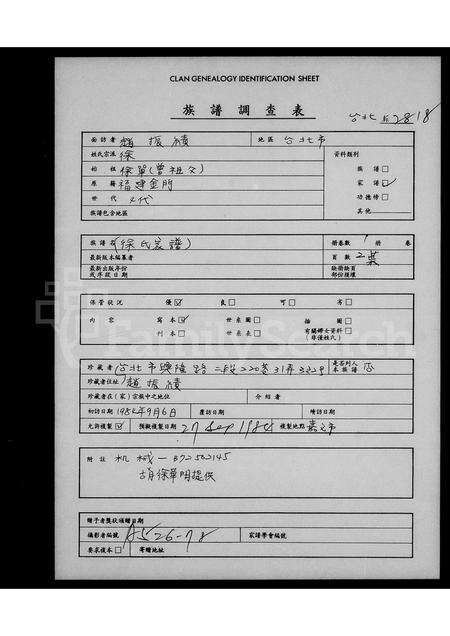 CLAN GENEALOGY IDENTIFICATION SHEET
族譜調查表
台北 2818
面訪者 趙振績 地區 台北市
姓氏宗派 徐 資料類別
始祖 徐單(曾祖父) 族譜□
原籍 福建金門 家譜☑
世代 代 功德榜□
族譜包含地區 其他
族譜名 (徐氏家譜) 冊卷數 1 卷
最新版本編纂者 頁數 2葉
最新出版年份 缺冊缺頁
或序跋日期 部份損壞
保管狀況 優☑ 良□ 可□ 劣□
內容 寫本☑ 世系圖□ 插圖□
刊本□ 世系表□ 有關婦女資料□
(非僅姓氏)
珍藏者 台北市興隆路二段220巷31弄 是否列入本族譜 否
珍藏者住址 趙振績
珍藏者在(家)宗族中之地位 介紹者
初訪日期 1984年9月6日 覆訪日期 續訪日期
允許複製☑ 預擬複製日期 27 Sep 1984 複製地點 嘉义市
附註 机械一B722145
胡徐華明提供
贈予者獎狀頒贈日期
攝影者編號 A526-78 家譜學會編號
要求複本□ 寄贈地址
FamilySearch